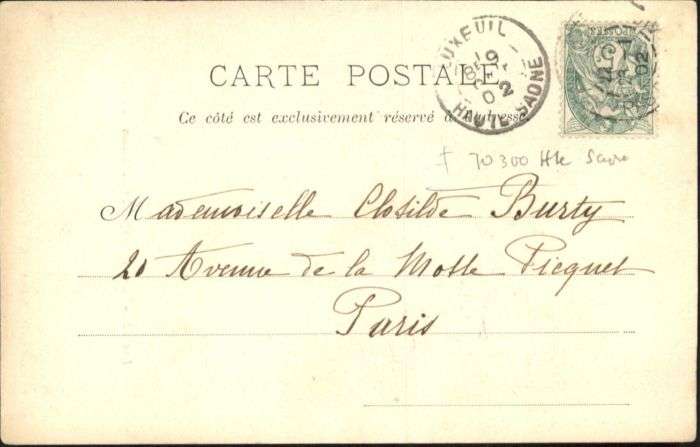 LUXEUIL
HAUTE-SAONE
02
CARTE POSTALE
Ce côté est exclusivement réservé à l'adresse
70300 Hte Saone
Mademoiselle Clotilde Burty
20 Avenue de la Motte Picquet
Paris